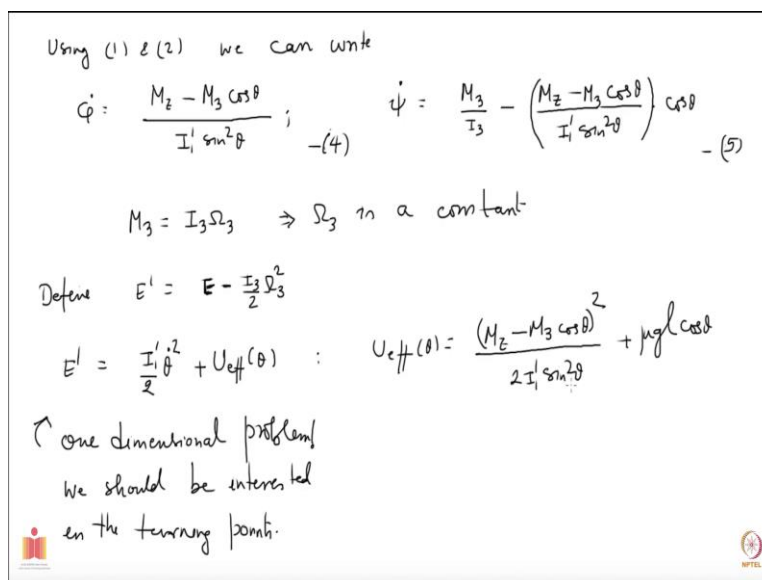 Using (1) & (2) we can write
φ̇ = (M_z − M_3 cosθ) / (I_1' sin²θ) ; −(4) ψ̇ = M_3/I_3 − ((M_z − M_3 cosθ) / (I_1' sin²θ)) cosθ −(5)
M_3 = I_3 Ω_3 ⇒ Ω_3 is a constant
Define E' = E − (I_3/2) Ω_3²
E' = (I_1'/2) θ̇² + U_eff(θ) : U_eff(θ) = (M_z − M_3 cosθ)² / (2 I_1' sin²θ) + μgl cosθ
↑ one dimensional problem
we should be interested
in the turning points.
NPTEL